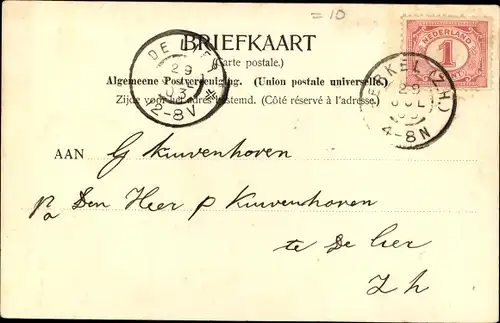 = 10
BRIEFKAART
(Carte postale.)
Algemeene Postvereeniging. (Union postale universelle)
Zijde voor het adres bestemd. (Côté réservé à l'adresse.)
DE L
29
03
12-8V
NEDERLAND
1
CENT
BERKEL (Z.H.)
29
JUL
03
4-8N
AAN G Kuivenhoven
p/a Den Heer P Kuivenhoven
te De Lier
Z h